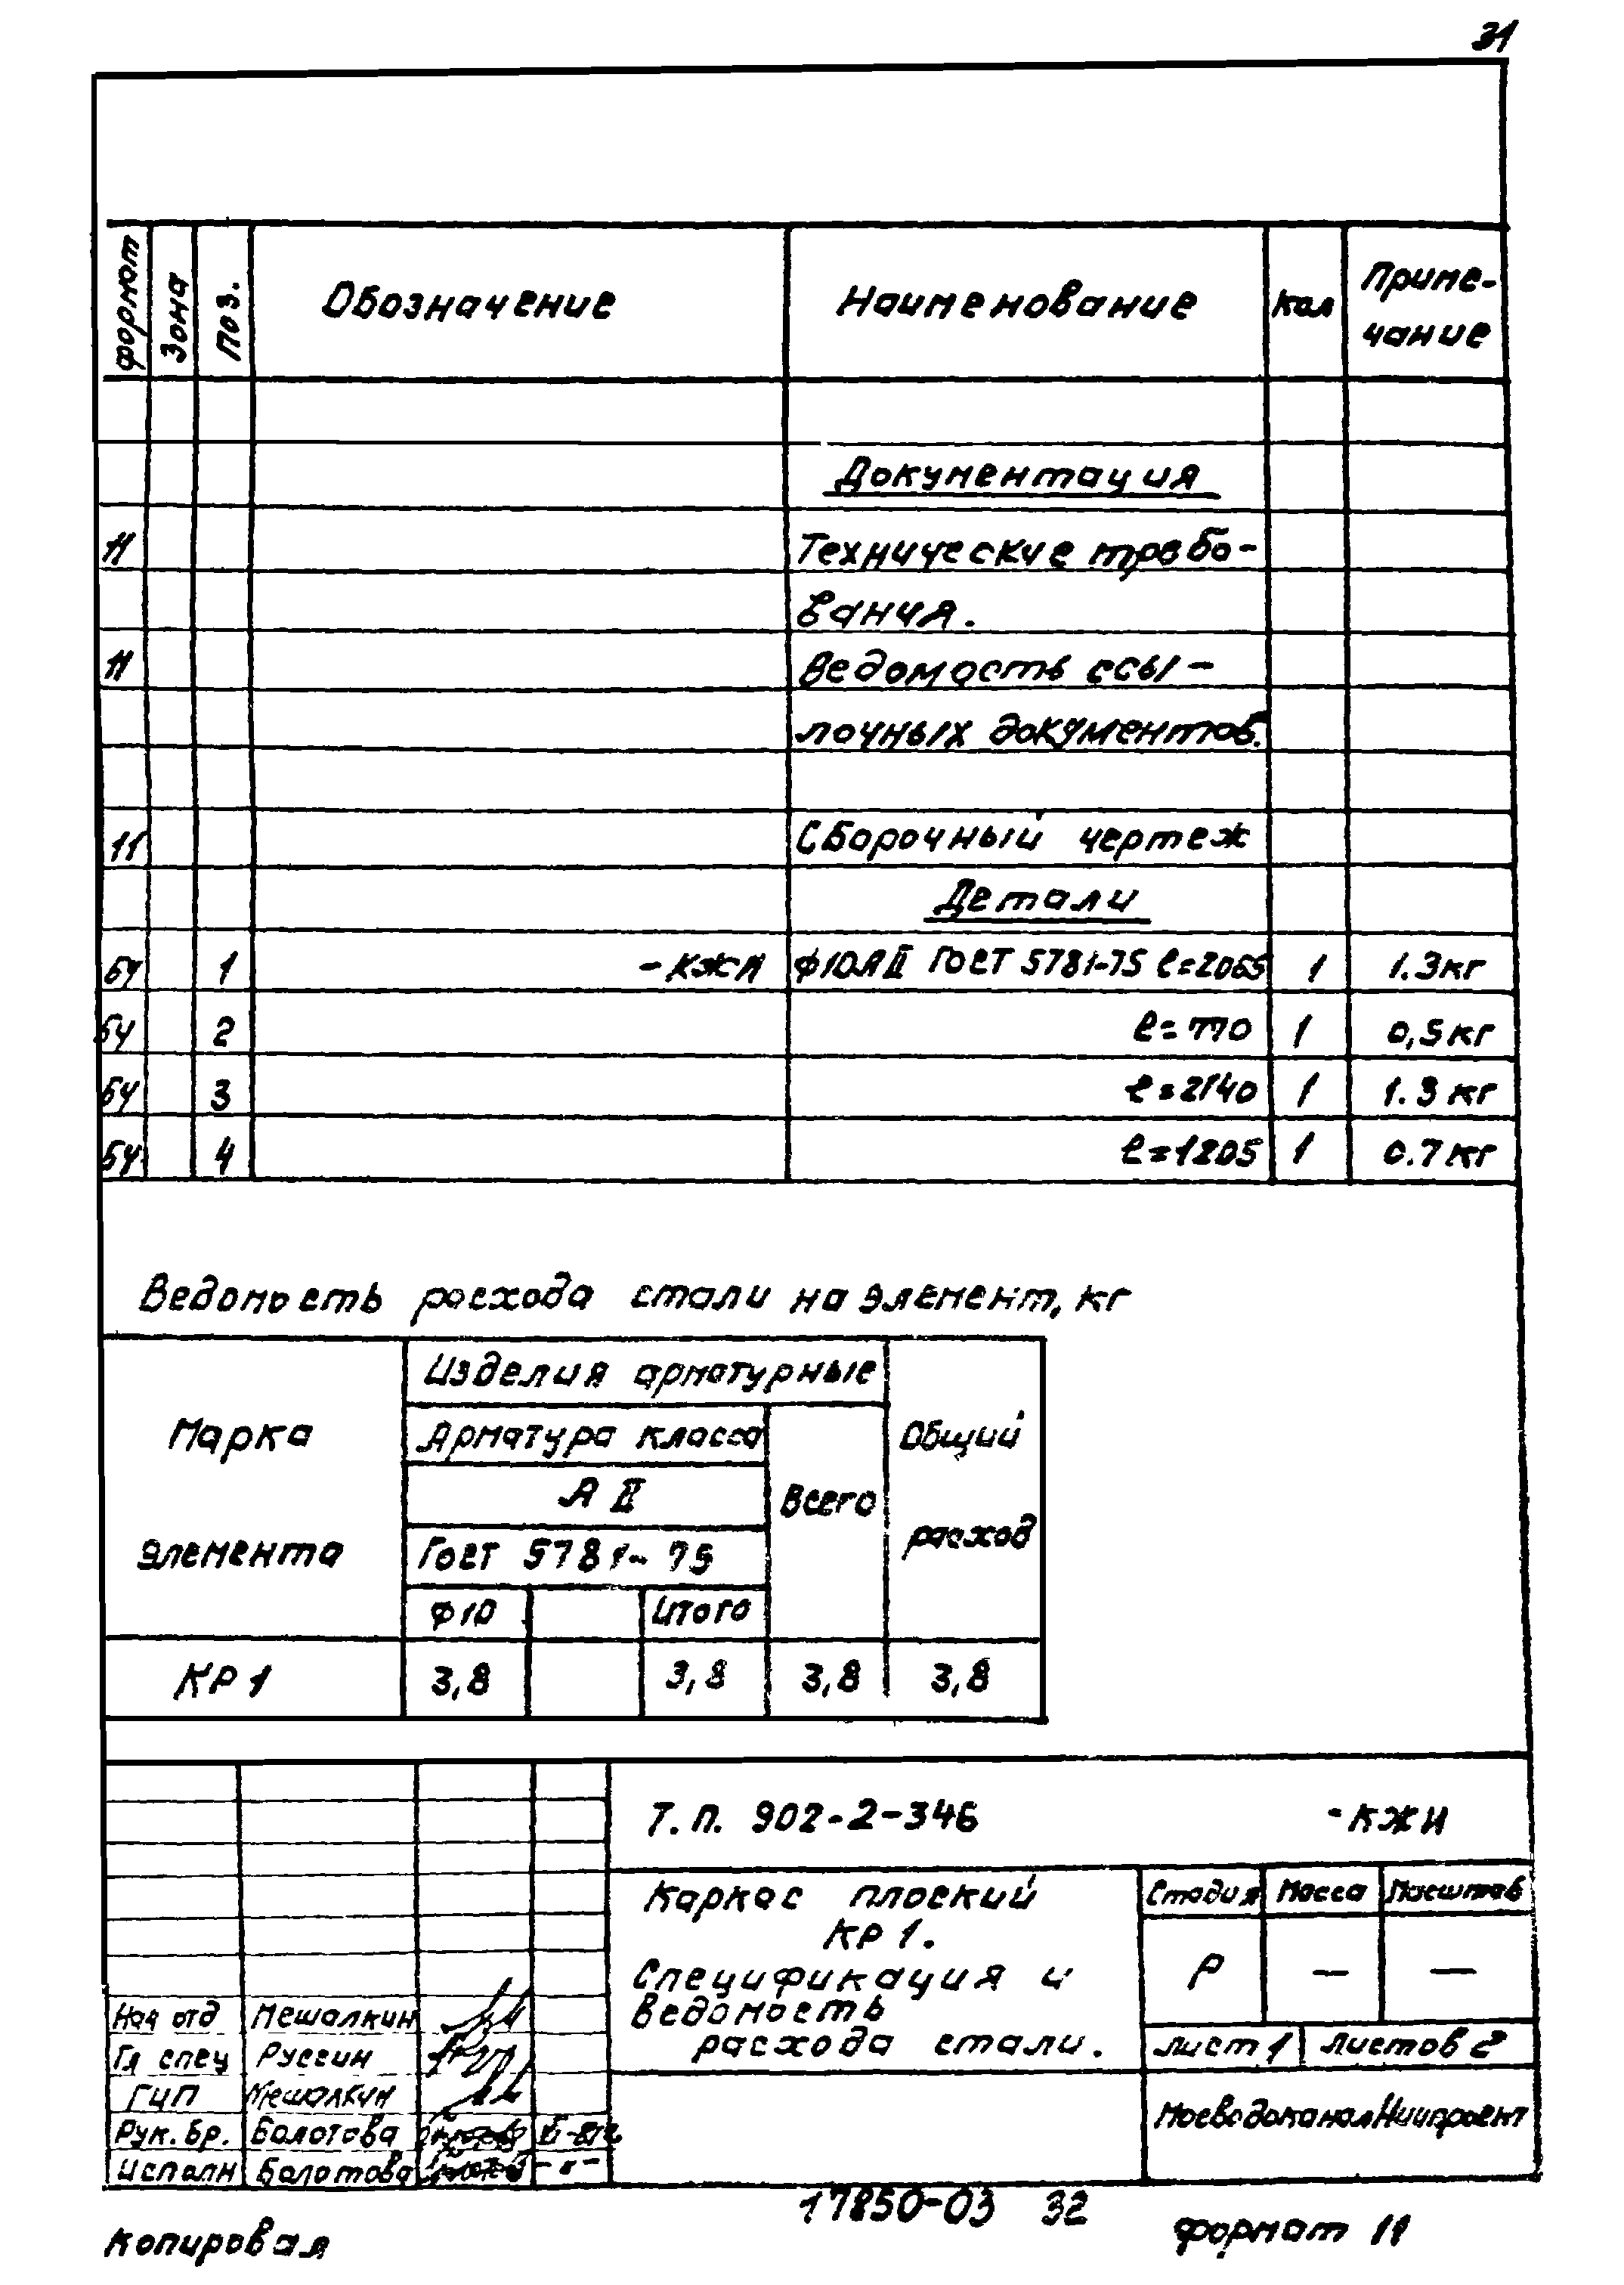 31
Формат Зона Поз. Обозначение Наименование Кол Приме-
чание
Документация
11 Технические требо-
вания.
11 Ведомость ссы-
лочных документов.
11 Сборочный чертеж
Детали
БЧ 1 -КЖИ Ф10АII ГОСТ 5781-75 ℓ=2065 1 1.3кг
БЧ 2 ℓ=770 1 0,5кг
БЧ 3 ℓ=2140 1 1.3 кг
БЧ 4 ℓ=1205 1 0.7кг
Ведомость расхода стали на элемент, кг
Марка
элемента
Изделия арматурные
Арматура класса
А II
ГОСТ 5781-75
Ф10 Итого
Всего
Общий
расход
КР1 3,8 3,8 3,8 3,8
Т.П. 902-2-346 -КЖИ
Каркас плоский
КР1.
Спецификация и
ведомость
расхода стали.
Стадия Масса Масштаб
Р — —
лист 1 листов 2
МосводоканалНИИпроект
Нач отд Мешалкин
Гл спец Руссин
ГИП Мешалкин
Рук. бр. Болотова
Исполн Болотова -"-
17850-03 32
Копировал
Формат 11